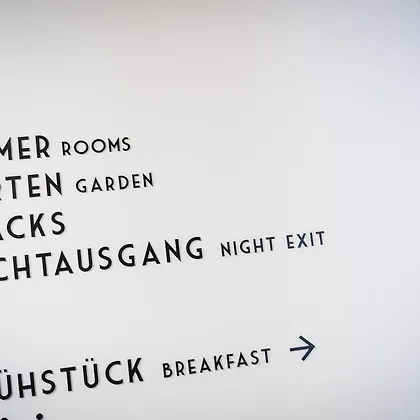 MER ROOMS
RTEN GARDEN
ACKS
CHTAUSGANG NIGHT EXIT
ÜHSTÜCK BREAKFAST →